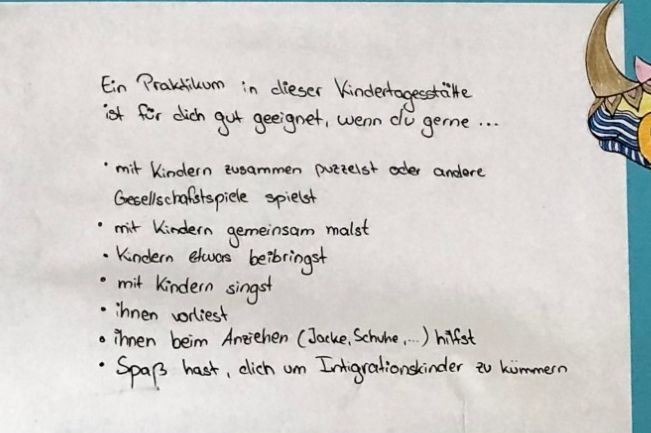 Ein Praktikum in dieser Kindertagesstätte
ist für dich gut geeignet, wenn du gerne ...
• mit Kindern zusammen puzzelst oder andere
Gesellschaftspiele spielst
• mit Kindern gemeinsam malst
• Kindern etwas beibringst
• mit Kindern singst
• ihnen vorliest
• ihnen beim Anziehen (Jacke, Schuhe,...) hilfst
• Spaß hast, dich um Intigrationskinder zu kümmern